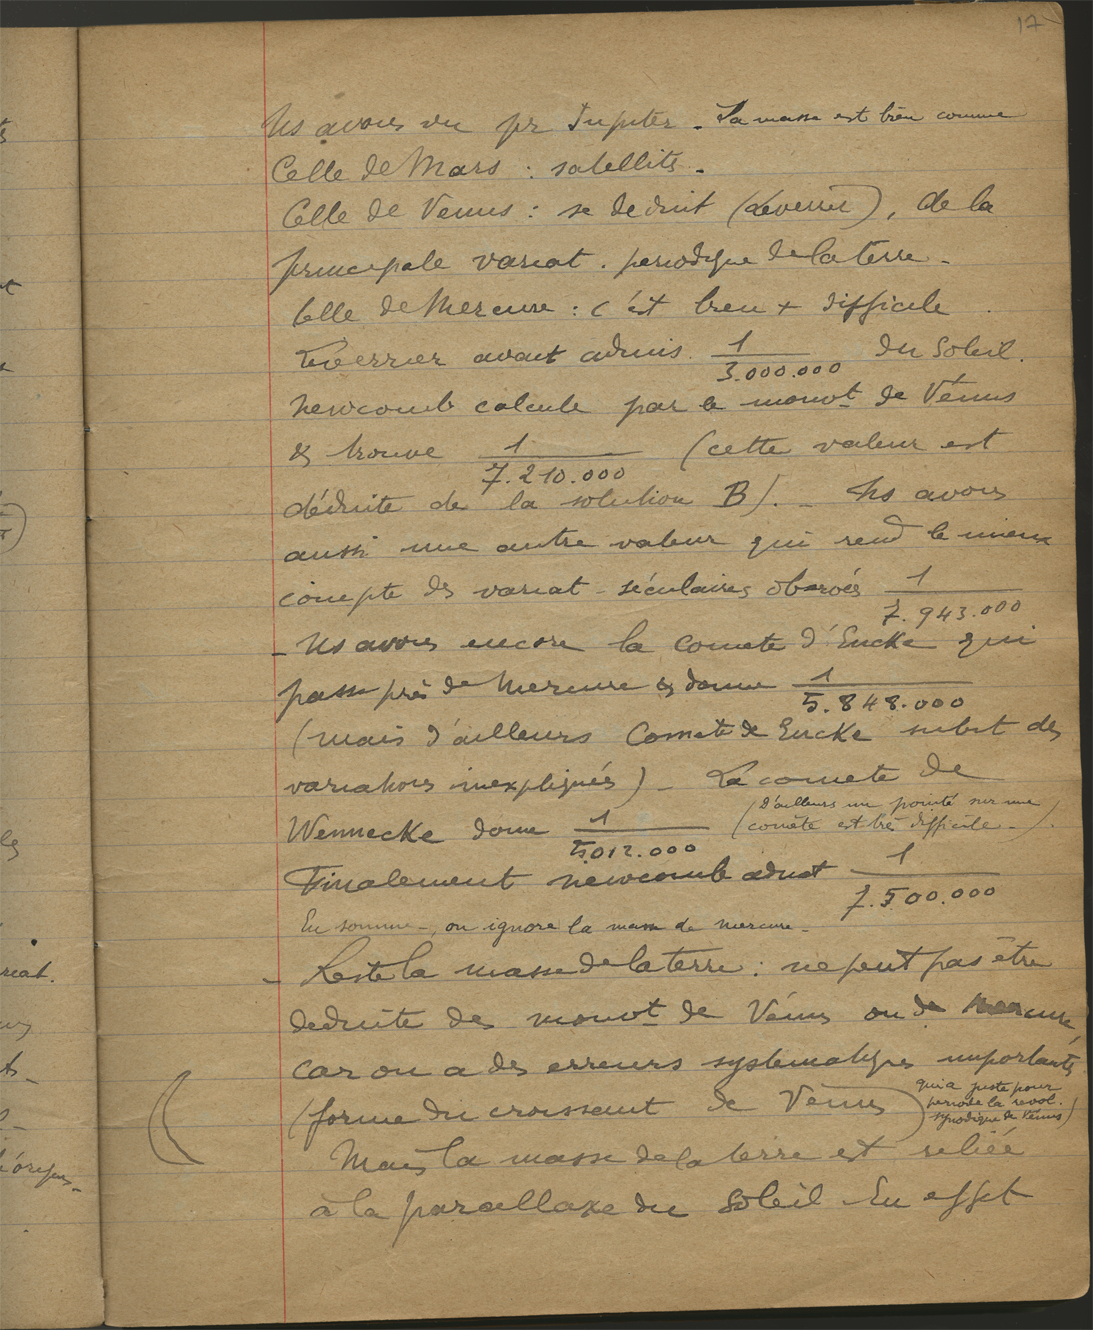 17
Ns avons vu pr Jupiter - La masse est bien connue
Celle de Mars : satellits -
Celle de Venus : se deduit (Leverrier), de la
principale variat. periodique de la terre -
Celle de Mercure : c'est bien + difficile
Leverrier avait admis 1/3.000.000 du Soleil.
Newcomb calcule par le mouvt de Vénus
& trouve 1/7.210.000 (cette valeur est
déduite de la solution B). - Ns avons
aussi une autre valeur qui rend le mieux
compte des variat - séculaires obsrvés 1/7.943.000
- Ns avons encore la comete d'Encke qui
passe près de Mercure & donne 1/5.848.000
(mais d'ailleurs Comete de Encke subit des
variations inexpliqués) - La comete de
Wennecke donne 1/5.012.000 (D'ailleurs un pointé sur une
comète est très difficile -).
Finalement Newcomb admet 1/7.500.000
En somme -, on ignore la masse de mercure -
- Reste la masse de la terre : ne peut pas être
deduite des mouvt de Vénus ou de Mercure,
car on a des erreurs systematiqes importants
(forme du croissant de Vénus) qui a juste pour
periode la revol.
synodique de Vénus)
Mais la masse de la terre est reliée
à la parallaxe du Soleil En effet